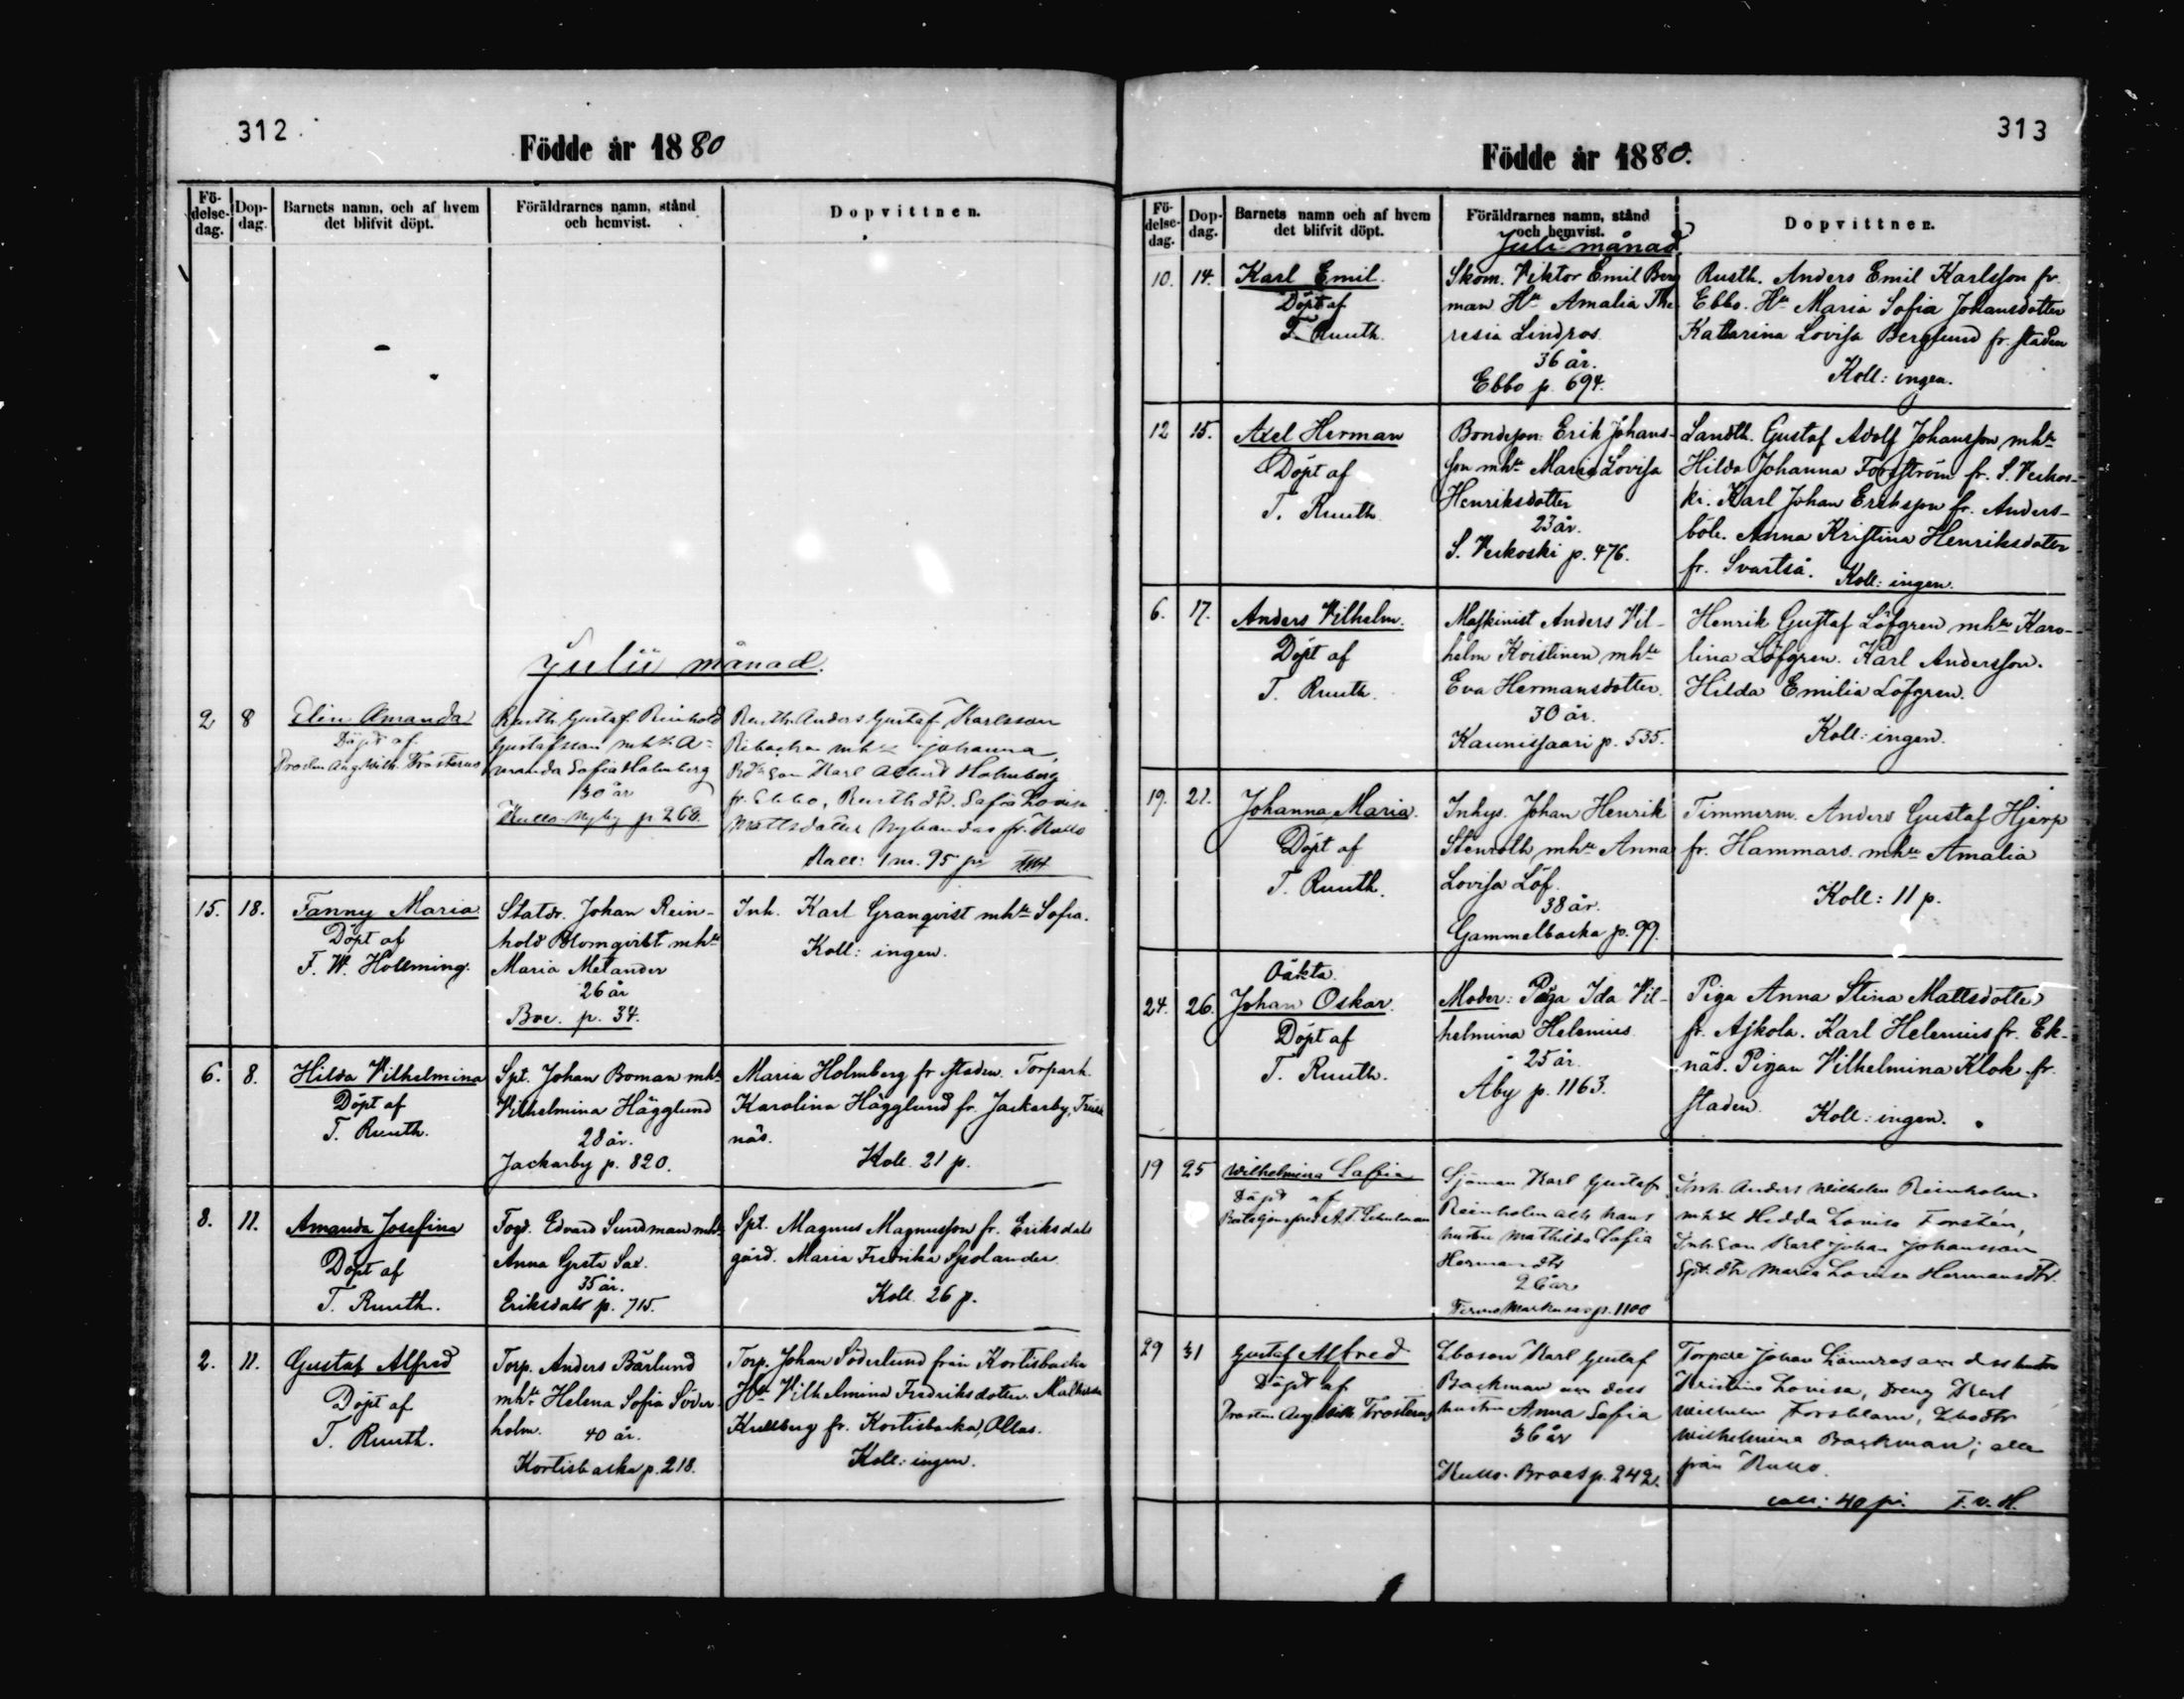 312.
Födde år 1880
Fö-
delse-
dag.
Dop-
dag.
Barnets namn, och af hvem
det blifvit döpt.
Föräldrarnes namn, stånd
och hemvist.
Dopvittnen.
Julii månad.
2 8
Elin Amanda
Döpt af
Prosten Aug. Wilh.
Rusth. Gustaf Reinhold
Gustafsson mhu A-
manda Sofia Holmberg
30 år
Kullo Nyby p 268.
Rusth. Anders Gustaf Karlsson
mhu Johanna,
Karl Albert Holmberg
fr. Ebbo, Rusth. dr. Sofia Lovisa
Mattsdotter fr. Kullo
1 m. 95 pi
15. 18.
Fanny Maria
Döpt af
F. W. Hollming.
Statdr. Johan Rein-
hold Blomqvist mhu
Maria Melander
26 år
Boe. p. 34.
Inh. Karl Granqvist mhu Sofia.
Koll: ingen.
6. 8.
Hilda Vilhelmina
Döpt af
T. Ruuth.
Spt. Johan Boman mhu
Vilhelmina Hägglund
28 år.
Jackarby p. 820.
Maria Holmberg fr staden. Torpark.
Karolina Hägglund fr. Jackarby,
näs.
Koll. 21 p.
8. 11.
Amanda Josefina
Döpt af
T. Ruuth.
Togd. Edvard Sundman mhu
Anna Greta Sax.
35 år.
Eriksdals p. 715.
Spt. Magnus Magnusson fr. Eriksdals
gård. Maria Fredrika Spolander
Koll. 26 p.
2. 11.
Gustaf Alfred
Döpt af
T. Ruuth.
Torp. Anders Bärlund
mhu Helena Sofia Söder-
holm. 40 år.
Kortisbacka p. 218.
Torp. Johan Söderlund från Kortisbacka
Hu Vilhelmina Fredriksdotter. Mathilda
Kullberg fr. Kortisbacka,
Koll: ingen.
313
Födde år 1880.
Fö-
delse-
dag.
Dop-
dag.
Barnets namn och af hvem
det blifvit döpt.
Föräldrarnes namn, stånd
och hemvist.
Dopvittnen.
Juli månad
10. 14.
Karl Emil
Döpt af
T. Ruuth.
Skom. Viktor Emil Berg
man Hu Amalia The-
resia Lindros
36 år.
Ebbo p. 694.
Rusth. Anders Emil Karlsson fr.
Ebbo. Hu Maria Sofia Johansdotter
Katarina Lovisa Berglund fr. staden
Koll: ingen.
12 15.
Axel Herman
Döpt af
T. Ruuth.
Bondeson: Erik Johans-
son mhu Maria Lovisa
Henriksdotter
23 år.
S. Veckoski p. 476.
Landth. Gustaf Adolf Johansson mhu
Hilda Johanna Forsström fr. S. Veckos-
ki. Karl Johan Eriksson fr. Anders-
böle. Anna Kristina Henriksdotter
fr. Svartså. Koll: ingen.
6. 17.
Anders Vilhelm.
Döpt af
T. Ruuth.
Maskinist Anders Vil-
helm Koistinen mhu
Eva Hermansdotter.
30 år.
Kaunissaari p. 535.
Henrik Gustaf Löfgren mhu Karo-
lina Löfgren. Karl Andersson.
Hilda Emilia Löfgren.
Koll: ingen.
19. 21.
Johanna Maria.
Döpt af
T. Ruuth.
Inhys. Johan Henrik
Stenroth mhu Anna
Lovisa Löf.
38 år.
Gammelbacka p. 99.
Timmerm. Anders Gustaf Hjerp
fr. Hammars. mhu Amalia
Koll: 11 p.
24. 26.
Oäkta
Johan Oskar.
Döpt af
T. Ruuth.
Moder: Piga Ida Vil-
helmina Helenius
25 år.
Åby p. 1163.
Piga Anna Stina Mattsdotter
fr. Ajkola. Karl Helenius fr. Ek-
näs. Pigan Vilhelmina Klok fr.
staden. Koll: ingen.
19 25
Wilhelmina Sofia
Döpt af
Sjöman Karl Gustaf
Reinholm och hans
hustru Mathilda Sofia
Herman dtr
26 år
p. 1100
Inh. Anders Wilhelm Reinholm
mhu Hedda Lovisa Forstén,
Inh. son Karl Johan Johansson
Spt. dtr Maria Lovisa Hermansdtr.
29 31
Gustaf Alfred
Döpt af
Prosten Aug. Wilh.
Karl Gustaf
Backman och dess
hustru Anna Sofia
36 år
Kullo. Braes p. 242.
Torpare Johan Lönnros och dess hustru
Kristina Lovisa, dreng Karl
Wilhelm Forsblom,
Wilhelmina Backman; alla
från Kullo.
coll: 40 pi. F. v. H.